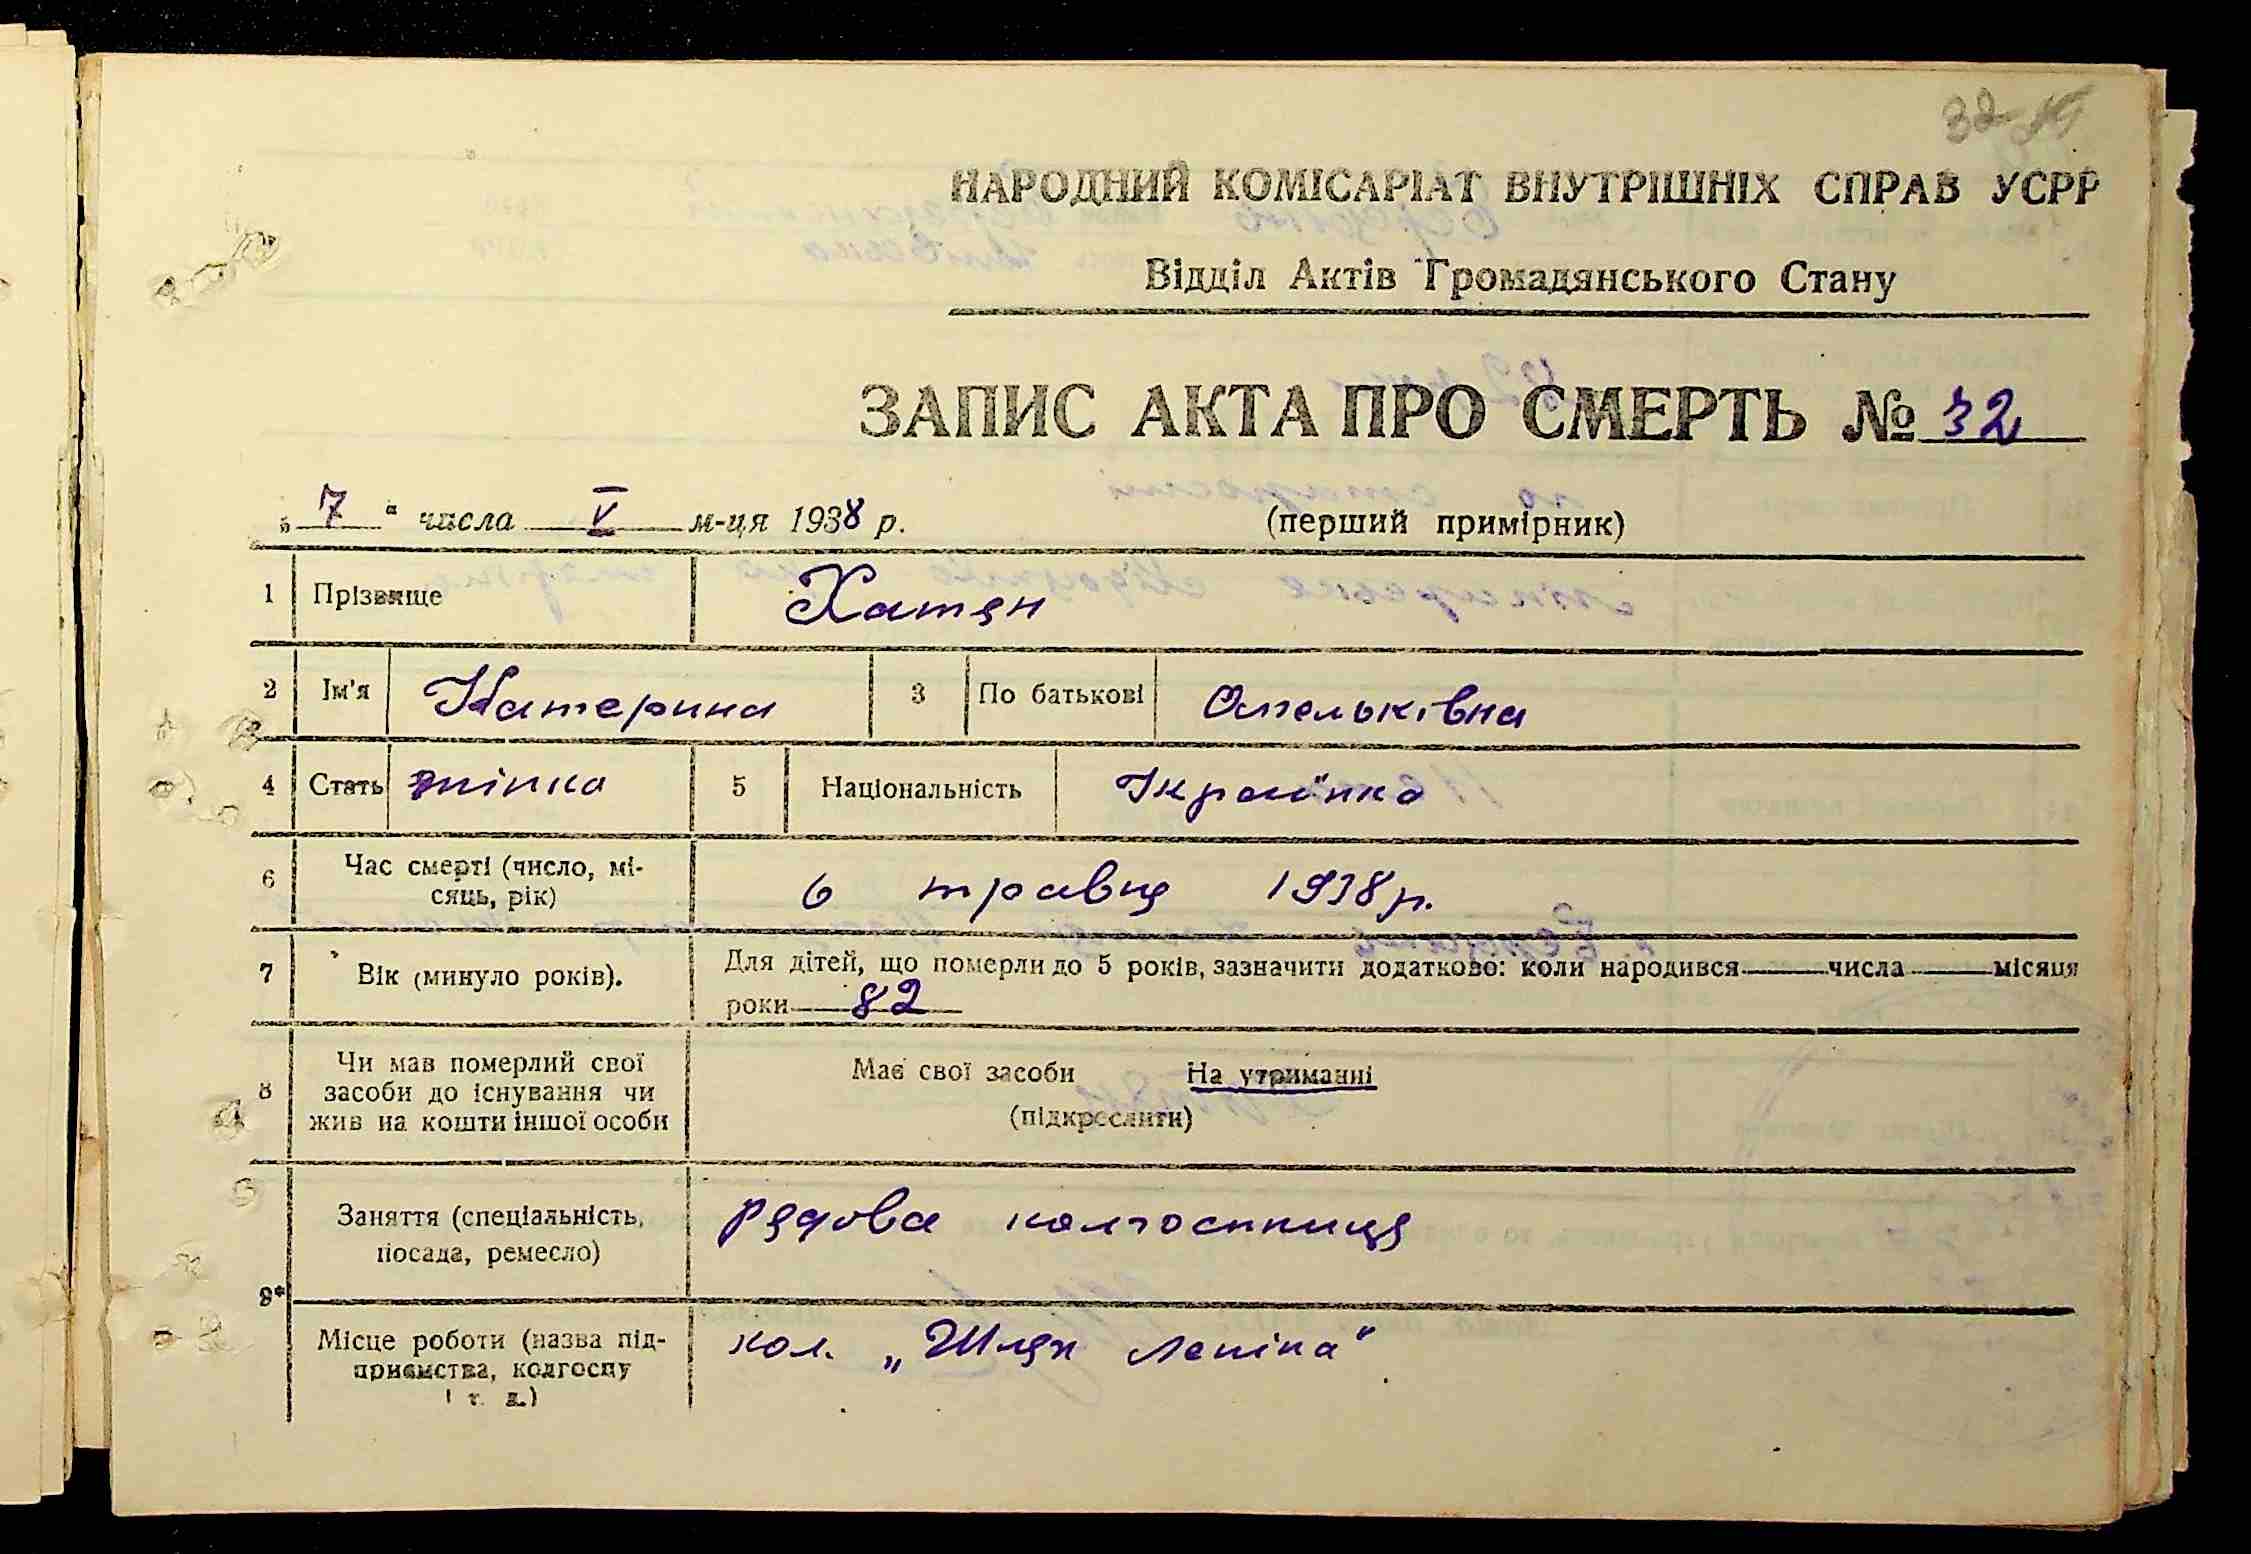 32
НАРОДНИЙ КОМІСАРІАТ ВНУТРІШНІХ СПРАВ УСРР
Відділ Актів Громадянського Стану
ЗАПИС АКТА ПРО СМЕРТЬ № 32
„ 7 “ числа V м-ця 1938 р. (перший примірник)
1 Прізвище Хатян
2 Ім'я Катерина 3 По батькові Омельківна
4 Стать жінка 5 Національність Українка
6 Час смерті (число, мі-
сяць, рік) 6 травня 1938 р.
7 Вік (минуло років). Для дітей, що померли до 5 років, зазначити додатково: коли народився числа місяця
роки 82
8 Чи мав померлий свої
засоби до існування чи
жив на кошти іншої особи
Має свої засоби На утриманні
(підкреслити)
9* Заняття (спеціальність,
посада, ремесло) рядова колгоспниця
Місце роботи (назва під-
приємства, колгоспу
і т. д.) кол. „Шлях Леніна“